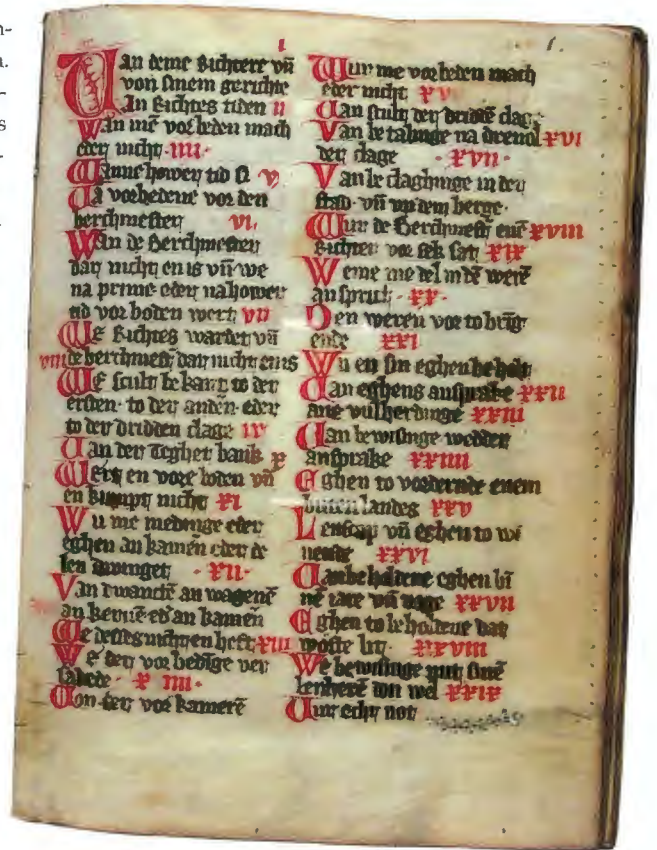 n-
a.
-
s
-
.
I
1.
Uan deme Richtere vn̄
von sinem gerichte
Van Richtes tiden II
Wan mē vorbeden mach
eder nicht · IIII ·
Wanne homen tid si V
Da vorbedene vor den
berchmester VI.
Wan de Berchmester
dar nicht en is vn̄ we
na prime eder na homer
tid vorboden wert VII
We Richtes wardet vn̄
VIII de berchmest dar nicht en is
We scult bekant to der
ersten · to der andēn · eder
to der dridden clage IX
Uan der Tegher bank X
Wert en vore boden vn̄
en kumpt nicht XI
Wu me medinge eder
eghen an kamēn eder de
len dwinget · XII ·
Van dwancte an wagene
an kerne ed an kamēn
We desses nicht en heft XIII
We der vorbedīge ver
sakede · XIIII ·
Uon der vor kamerē
Wur me vorbeden mach
eder nicht XV
Uan scult der driddē clage
Van betalinge na drenol XVI
der clage · XVII ·
Van beclaghinge in der
stad · vn̄ vp dem berge ·
Wur de Berchmest enē XVIII
Richter vor sek sat XIX
Weme me del in dē werē
an sprikt · XX ·
Den weren vor to brīg
ende XXI
Wu en sin eghen behalt
Uan eghens ansprake XXII
ane vulherdinge XXIII
Uan bewisinge wedder
ansprake XXIIII
Eghen to vorderende enem
buten landes XXV
Lenscap vn̄ eghen to wi
nende XXVI
Uan beholdene eghen bī
nē iare vn̄ dage XXVII
Eghen to beholdene dat
woste lit · XXVIII
We bewisinge mit sinē
lenherē don wel XXIX
Uur echt not